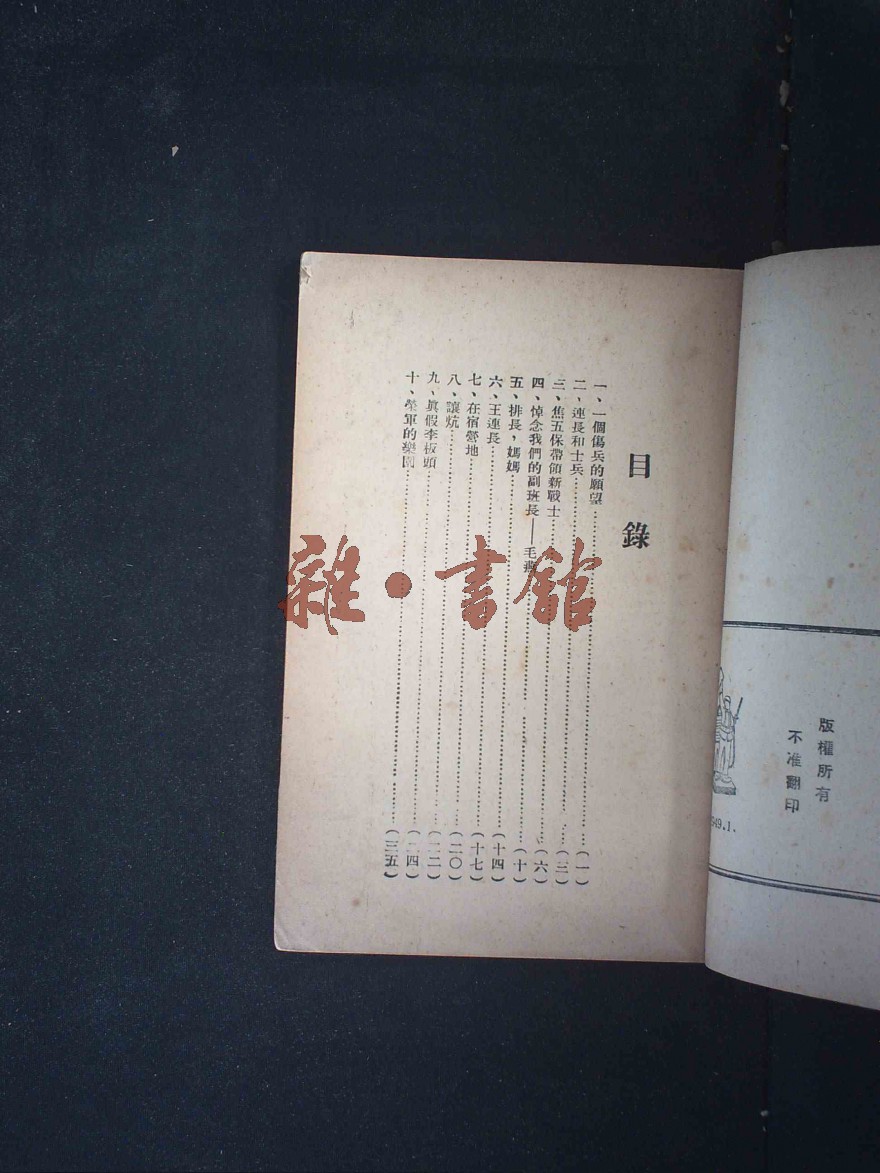 版權所有
不准翻印
949.1.
目錄
一、一個傷兵的願望……(一)
二、連長和士兵……(三)
三、焦五保帶領新戰士……(六)
四、悼念我們的副班長——毛……(十)
五、排長，媽媽……(十四)
六、王連長……(十七)
七、在宿營地……(二〇)
八、讓炕……(二二)
九、眞假李板頭……(二四)
十、榮軍的樂園……(三五)
雜·書館